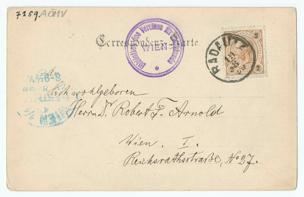 7189 AÖMV
Correspondenz-Karte
WIEN
RADAUTZ
Hochwohlgeboren
Herrn Dr. Robert F. Arnold
Wien, I.
Reichsrathsstraße, No 27.